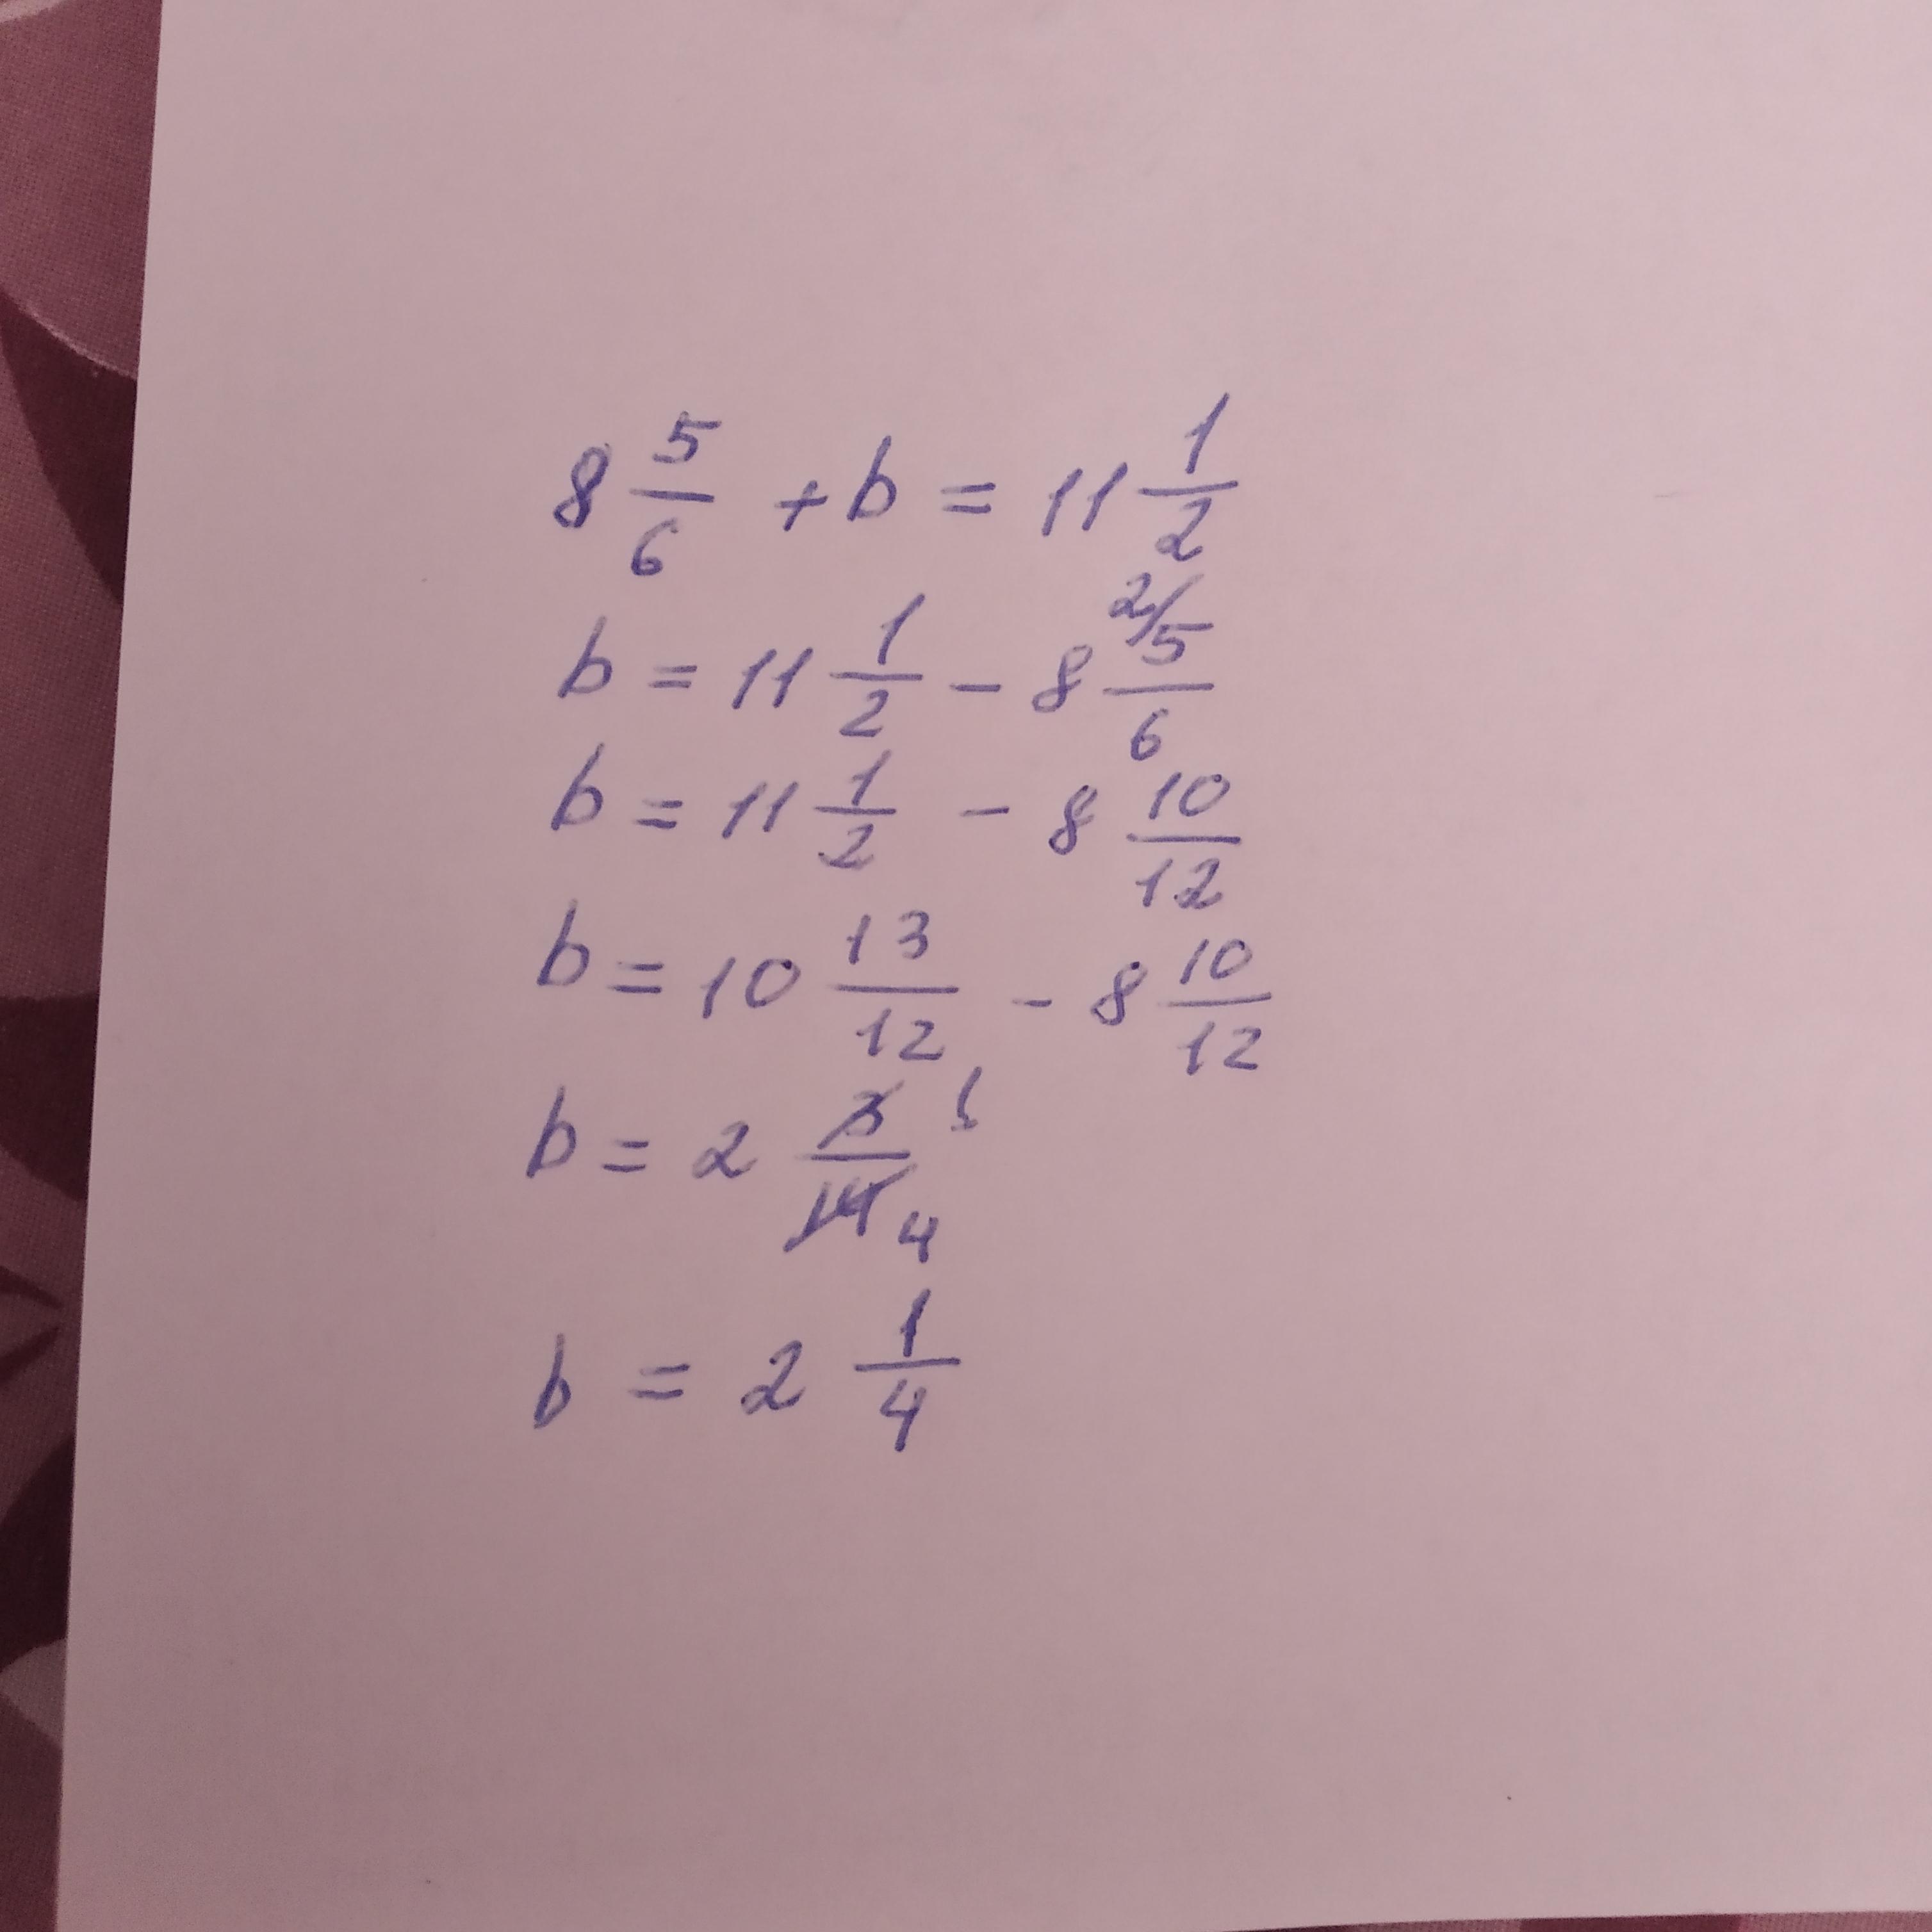 8 5/6 + b = 11 1/2
b = 11 1/2 - 8 2/ 5/6
b = 11 1/2 - 8 10/12
b = 10 13/12 - 8 10/12
b = 2 3/14 1 4
b = 2 1/4